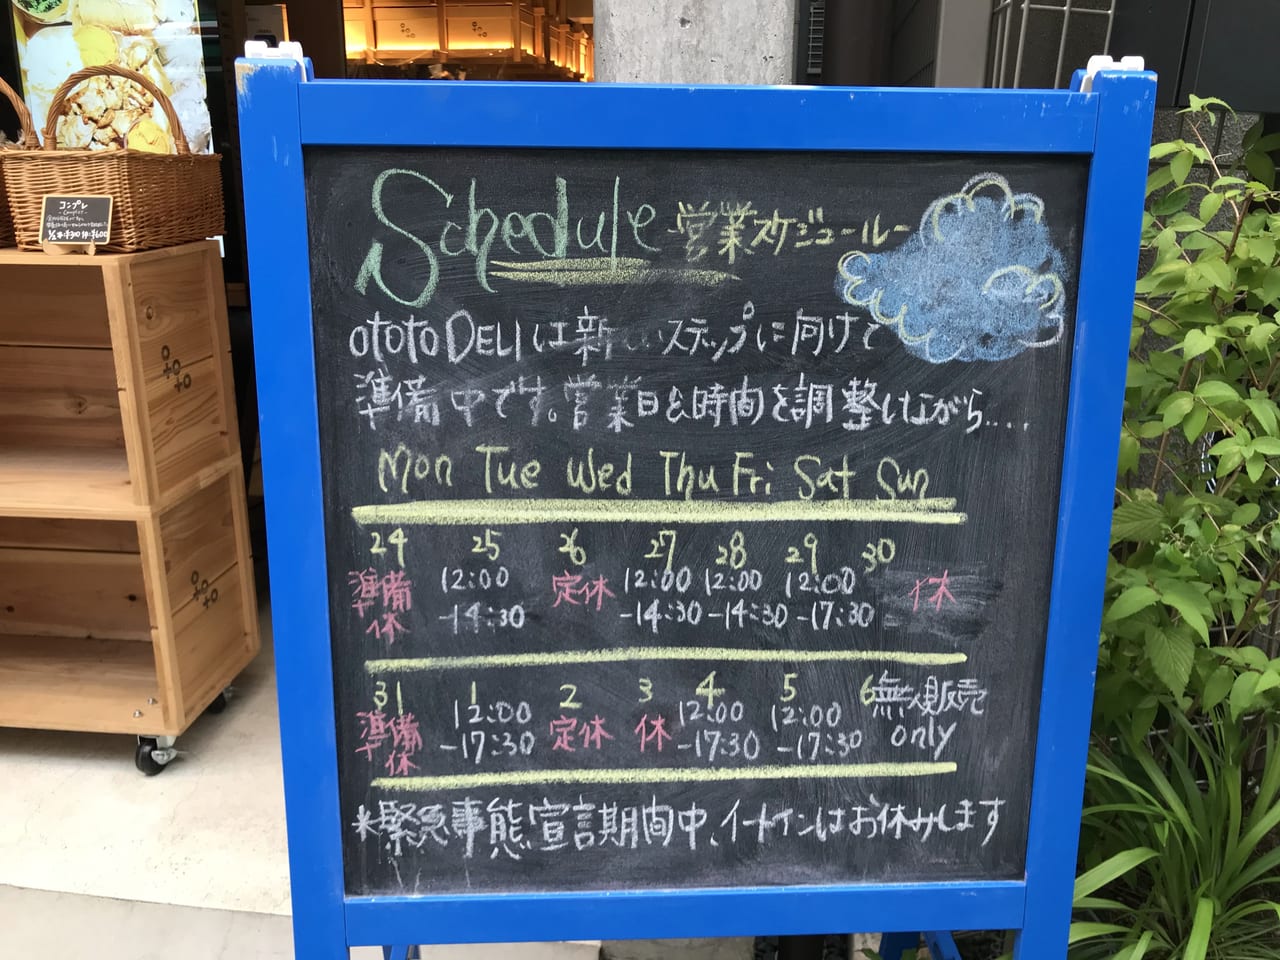 Schedule 営業スケジュール
ototo DELIは新 ステップに向けて
準備中です。営業日&時間を調整しながら....
Mon Tue Wed Thu Fri Sat Sun
24 25 26 27 28 29 30
準備休 12:00-14:30 定休 12:00-14:30 12:00-14:30 12:00-17:30 休
31 1 2 3 4 5 6
準備休 12:00-17:30 定休 休 12:00-17:30 12:00-17:30 無人販売only
*緊急事態宣言期間中、イートインはお休みします
コンプレ